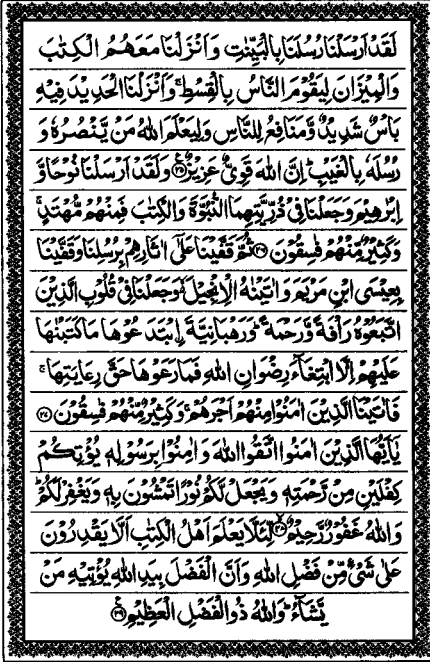 لَقَدْ اَرْسَلْنَا رُسُلَنَا بِالْبَيِّنٰتِ وَاَنْزَلْنَا مَعَهُمُ الْكِتٰبَ
وَالْمِيْزَانَ لِيَقُوْمَ النَّاسُ بِالْقِسْطِ ۚ وَاَنْزَلْنَا الْحَدِيْدَ فِيْهِ
بَاْسٌ شَدِيْدٌ وَّمَنَافِعُ لِلنَّاسِ وَلِيَعْلَمَ اللّٰهُ مَنْ يَّنْصُرُهٗ وَ
رُسُلَهٗ بِالْغَيْبِ ؕ اِنَّ اللّٰهَ قَوِىٌّ عَزِيْزٌ ۝۲۵ وَلَقَدْ اَرْسَلْنَا نُوْحًا وَّ
اِبْرٰهِيْمَ وَجَعَلْنَا فِىْ ذُرِّيَّتِهِمَا النُّبُوَّةَ وَالْكِتٰبَ فَمِنْهُمْ مُّهْتَدٍ ۚ
وَكَثِيْرٌ مِّنْهُمْ فٰسِقُوْنَ ۝۲۶ ثُمَّ قَفَّيْنَا عَلٰٓى اٰثَارِهِمْ بِرُسُلِنَا وَقَفَّيْنَا
بِعِيْسَى ابْنِ مَرْيَمَ وَاٰتَيْنٰهُ الْاِنْجِيْلَ ۙ وَجَعَلْنَا فِىْ قُلُوْبِ الَّذِيْنَ
اتَّبَعُوْهُ رَاْفَةً وَّرَحْمَةً ؕ وَرَهْبَانِيَّةَ ۨابْتَدَعُوْهَا مَا كَتَبْنٰهَا
عَلَيْهِمْ اِلَّا ابْتِغَآءَ رِضْوَانِ اللّٰهِ فَمَا رَعَوْهَا حَقَّ رِعَايَتِهَا ۚ
فَاٰتَيْنَا الَّذِيْنَ اٰمَنُوْا مِنْهُمْ اَجْرَهُمْ ۚ وَكَثِيْرٌ مِّنْهُمْ فٰسِقُوْنَ ۝۲۷
يٰٓاَيُّهَا الَّذِيْنَ اٰمَنُوا اتَّقُوا اللّٰهَ وَاٰمِنُوْا بِرَسُوْلِهٖ يُؤْتِكُمْ
كِفْلَيْنِ مِنْ رَّحْمَتِهٖ وَيَجْعَلْ لَّكُمْ نُوْرًا تَمْشُوْنَ بِهٖ وَيَغْفِرْ لَكُمْ ؕ
وَاللّٰهُ غَفُوْرٌ رَّحِيْمٌ ۝۲۸ لِّئَلَّا يَعْلَمَ اَهْلُ الْكِتٰبِ اَلَّا يَقْدِرُوْنَ
عَلٰى شَىْءٍ مِّنْ فَضْلِ اللّٰهِ وَاَنَّ الْفَضْلَ بِيَدِ اللّٰهِ يُؤْتِيْهِ مَنْ
يَّشَآءُ ؕ وَاللّٰهُ ذُو الْفَضْلِ الْعَظِيْمِ ۝۲۹